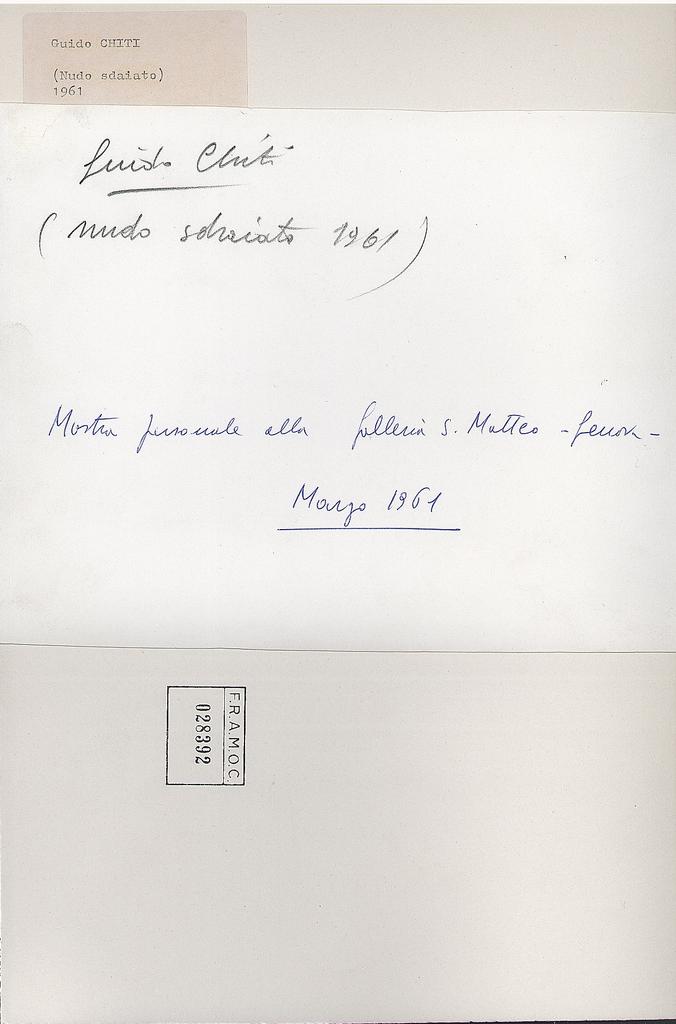 Guido CHITI
(Nudo sdaiato)
1961
Guido Chiti
( nudo sdraiato 1961 )
Mostra personale alla Galleria S. Matteo - Genova -
Marzo 1961
F.R.A.M.O.C.
028392